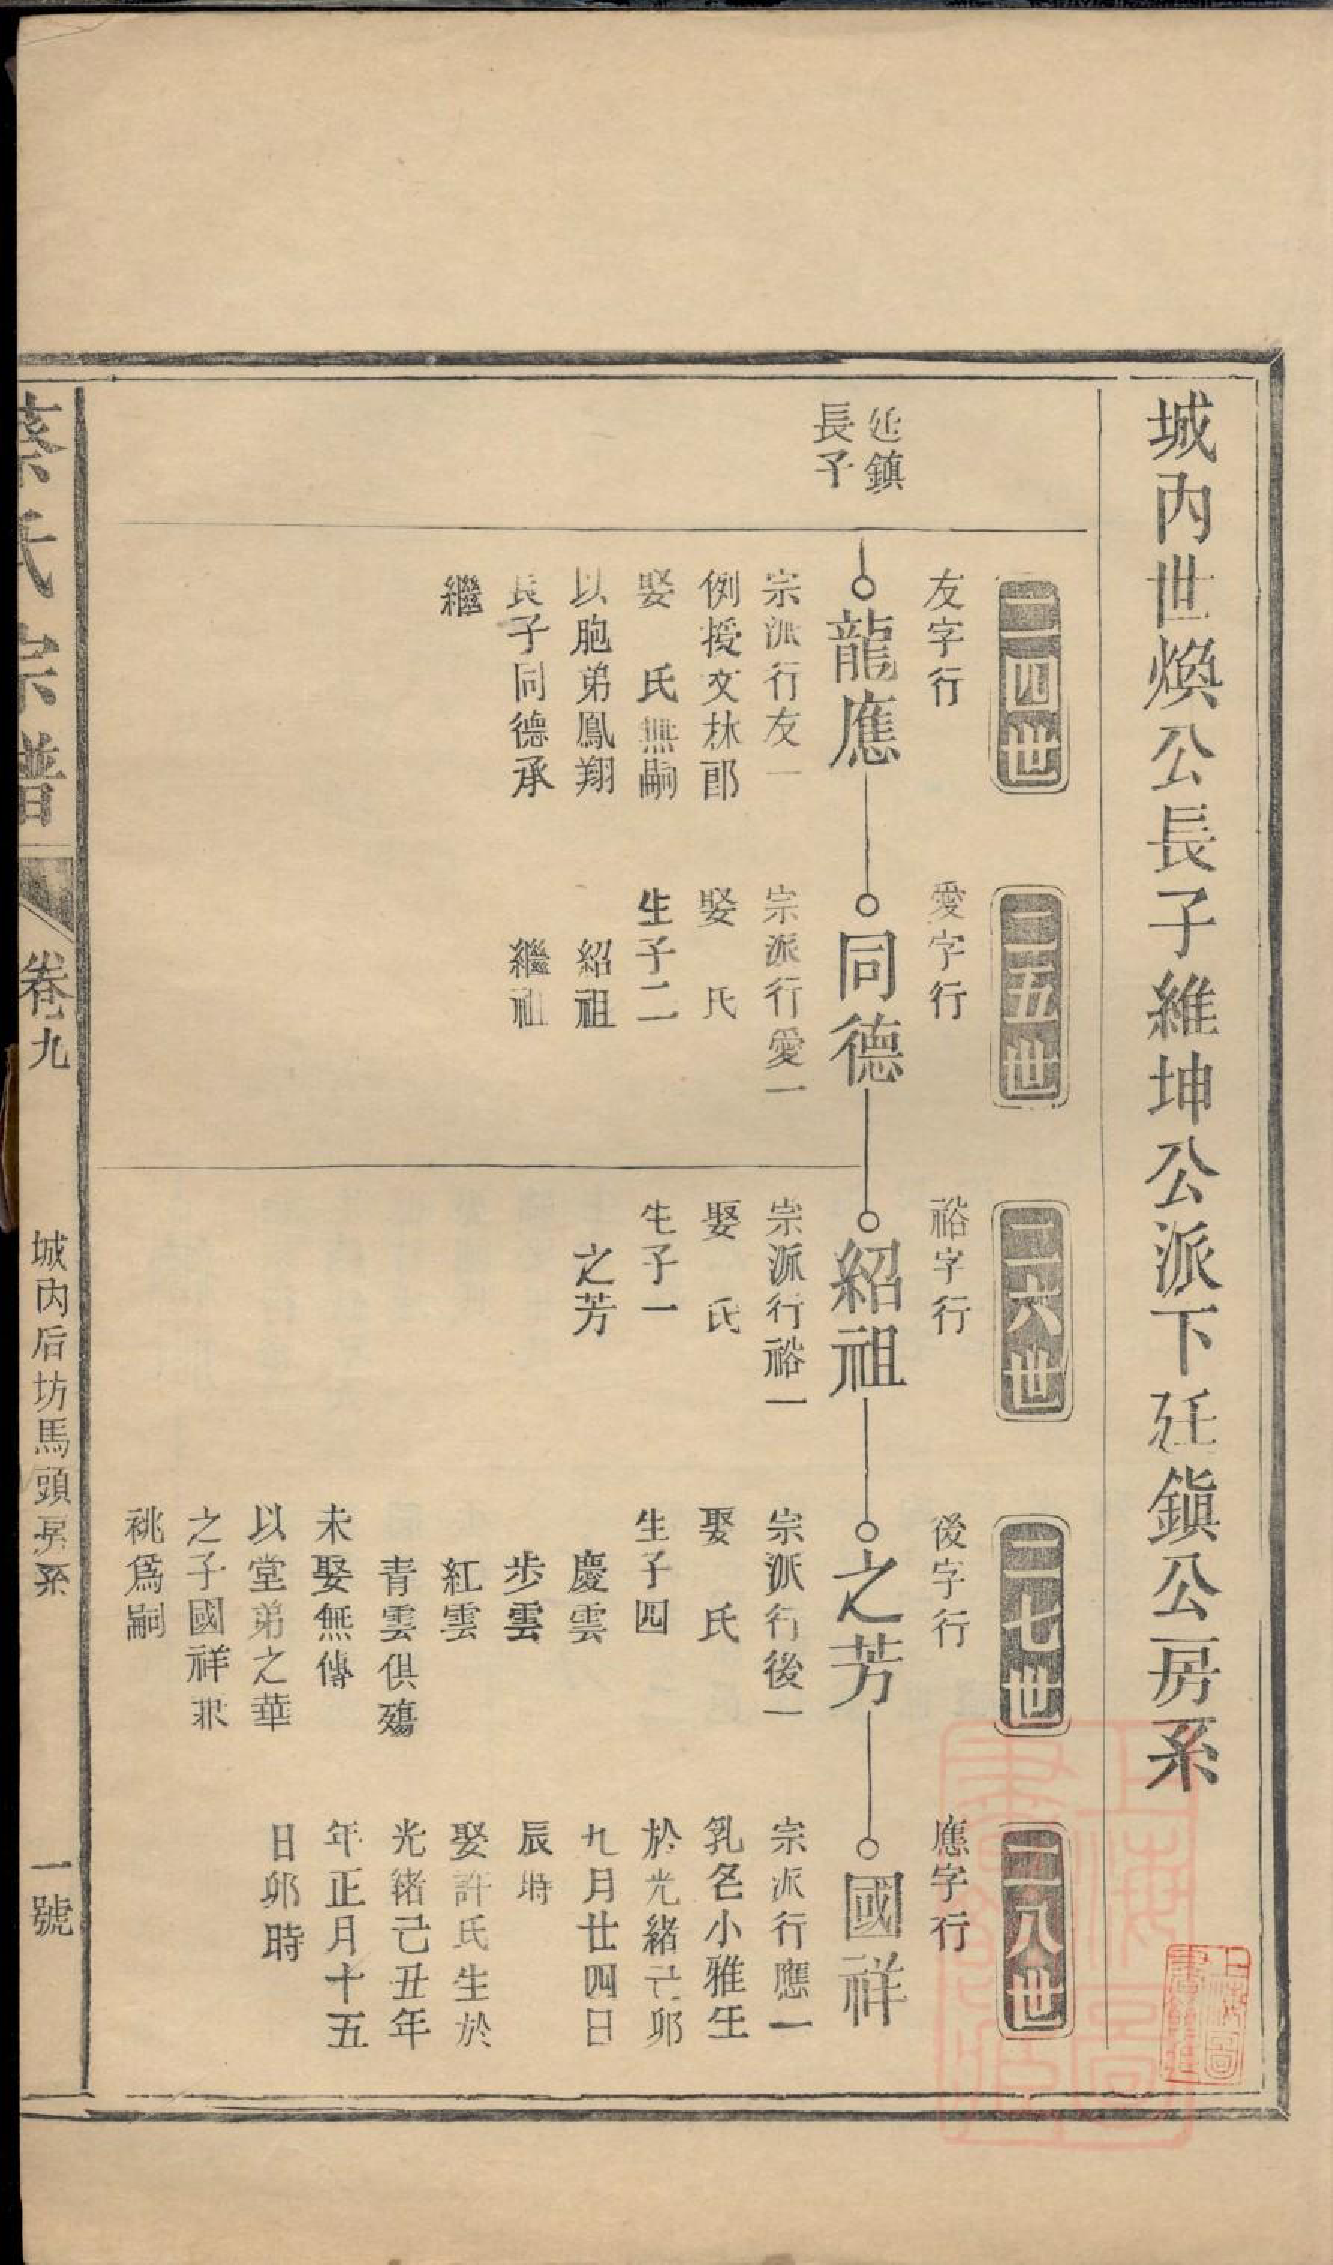 城內世煥公長子維坤公派下廷鎮公房系
二四世
二五世
二六世
二七世
二八世
友字行
愛字行
裕字行
後字行
應字行
廷鎮
長子
龍應
宗派行友一
例授文林郎
娶 氏無嗣
以胞弟鳳翔
長子同德承
繼
同德
宗派行愛一
娶 氏
生子二
紹祖
繼祖
紹祖
宗派行裕一
娶 氏
生子一
之芳
之芳
宗派行後一
娶 氏
生子四
慶雲
步雲
紅雲
青雲俱殤
未娶無傳
以堂弟之華
之子國祥兼
祧為嗣
國祥
宗派行應一
乳名小雅生
於光緒己卯
九月廿四日
辰時
娶許氏生於
光緒己丑年
年正月十五
日卯時
蔡氏宗譜
卷九
城內后坊馬頭房系
一號